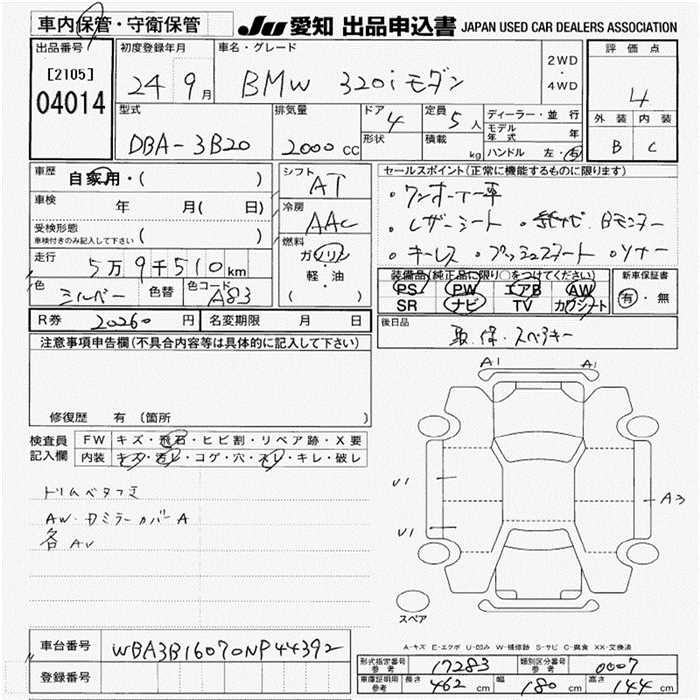 車内保管・守衛保管
JU 愛知 出品申込書 JAPAN USED CAR DEALERS ASSOCIATION
出品番号 初度登録年月 車名・グレード 評価点
[2105]
04014
24 9月 BMW 320i モダン 2WD・4WD 4
型式 排気量 ドア 4 定員 5人 ディーラー・並行 外装 内装
DBA-3B20 2000cc 形状 積載 kg モデル年式 年 B C
ハンドル 左・右
車歴 自家用・( ) シフト AT セールスポイント(正常に機能するものに限ります)
車検 年 月( 日) 冷房 AAC ・ワンオーナー車
受検形態 ( )
車検付きのみ記入して下さい
・レザーシート ・純ナビ・Bモニター
走行 5万9千510km 燃料 ガソリン ・キーレス ・プッシュスタート ・ソナー
軽・油
( )
色 シルバー 色替 色コード A83
装備品(純正品に限り○をつけてください) 新車保証書
PS PW エアB AW 有・無
SR ナビ TV カワシート
R券 20260円 名変期限 月 日 後日品
取.保.スペアキー
注意事項申告欄(不具合内容等は具体的に記入して下さい)
A1 A1
修復歴 有 (箇所 )
検査員 FW キズ・飛石・ヒビ割・リペア跡・X要
記入欄 内装 キズ・汚レ・コゲ・穴・スレ・キレ・破レ
U1
A3
U1
AW.ドミラーカバーA
各AU
スペア
車台番号 WBA3B16070NP44392
A-キズ E-エクボ U-凹み W-補修跡 S-サビ C-腐食 XX-交換済
登録番号
形式指定番号 参考 17283 類別区分番号 参考 0007
車庫証明用 参考 長さ 462cm 幅 180cm 高さ 144cm